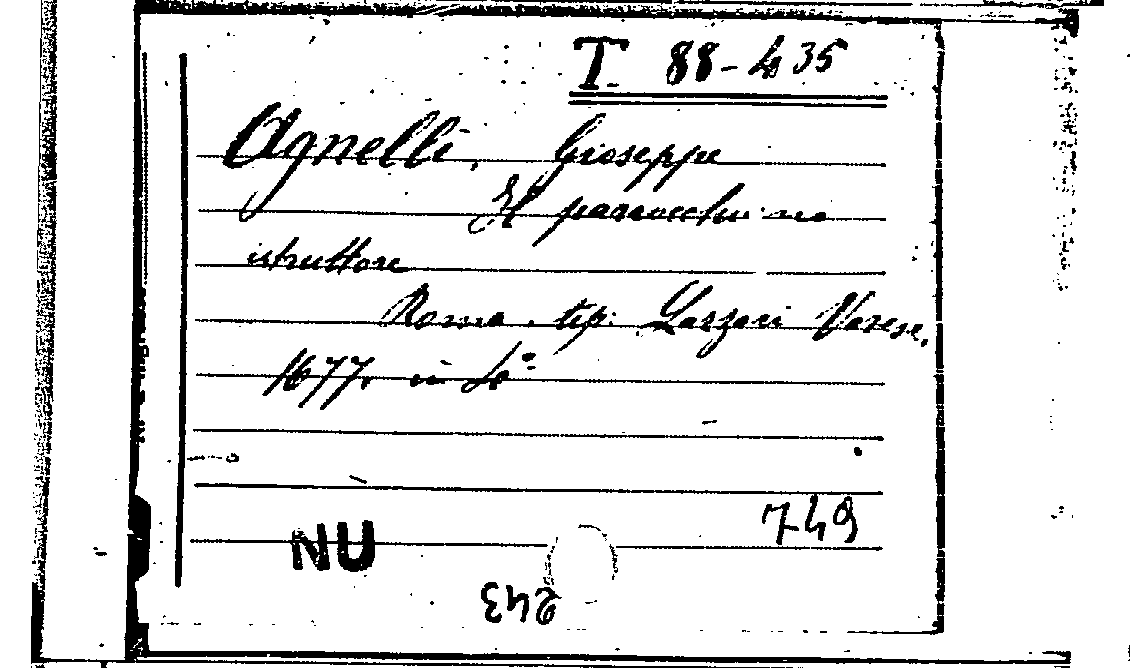 T. 88-435
Agnelli, Giuseppe
Il parrocchiano
istruttore
Roma. tip. Lazzari Varese,
1677. in 4°
749
NU
243